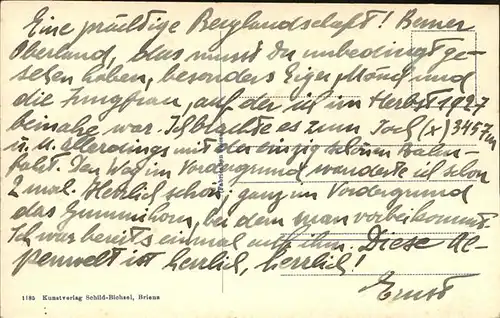 Eine prächtige Berglandschaft! Berner
Oberland, das musst Du unbedingt ge-
sehen haben, besonders Eiger, Mönch und
die Jungfrau, auf der ich im Herbst 1927
beinahe war. Ich brachte es zum Joch (x) 3457m
u. allerdings mit der einzig schönen Bahn-
fahrt. Den Weg im Vordergrund wanderte ich schon
2 mal. Herrlich schön, ganz im Vordergrund
das Gummihorn, bei dem man vorbeikommt.
Ich war bereits einmal auf ihm. Diese Al-
penwelt ist herrlich, herrlich!
Ernst
1195 Kunstverlag Schild-Bichsel, Brienz